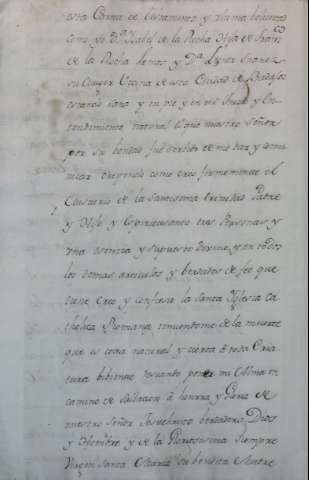 esta Carta de testamento y ultima boluntad
como yo Dª Isabel de la Rocha Hija de Franco
de la Rocha lemos y Dª Suarez
su muger Vecina de esta Ciudad de Badajoz
estando sana y en pie y en mi Juicio y En
tendimiento natural el que nuestro Señor
por su bondad fue serbido de me dar y comu
nicar creyendo como creo firmemente el
misterio de la Santissima trinidad Padre
y Hijo y Espiritusanto tres Personas y
una esencia y supuesto divino, y en todos
los demas articulos y berdades de fee que
tiene Cree y confiesa la Santa Yglesia Ca
tholica Romana temiendome de la muerte
que es cosa natural y cierta á toda Cria
tura bibiente deseando poner mi Alma en
camino de Salbacion á honrra y Gloria de
nuestro Señor Jesuchristo berdadero Dios
y Hombre y de la Gloriosisima siempre
Virgen Santa Maria su bendita Madre